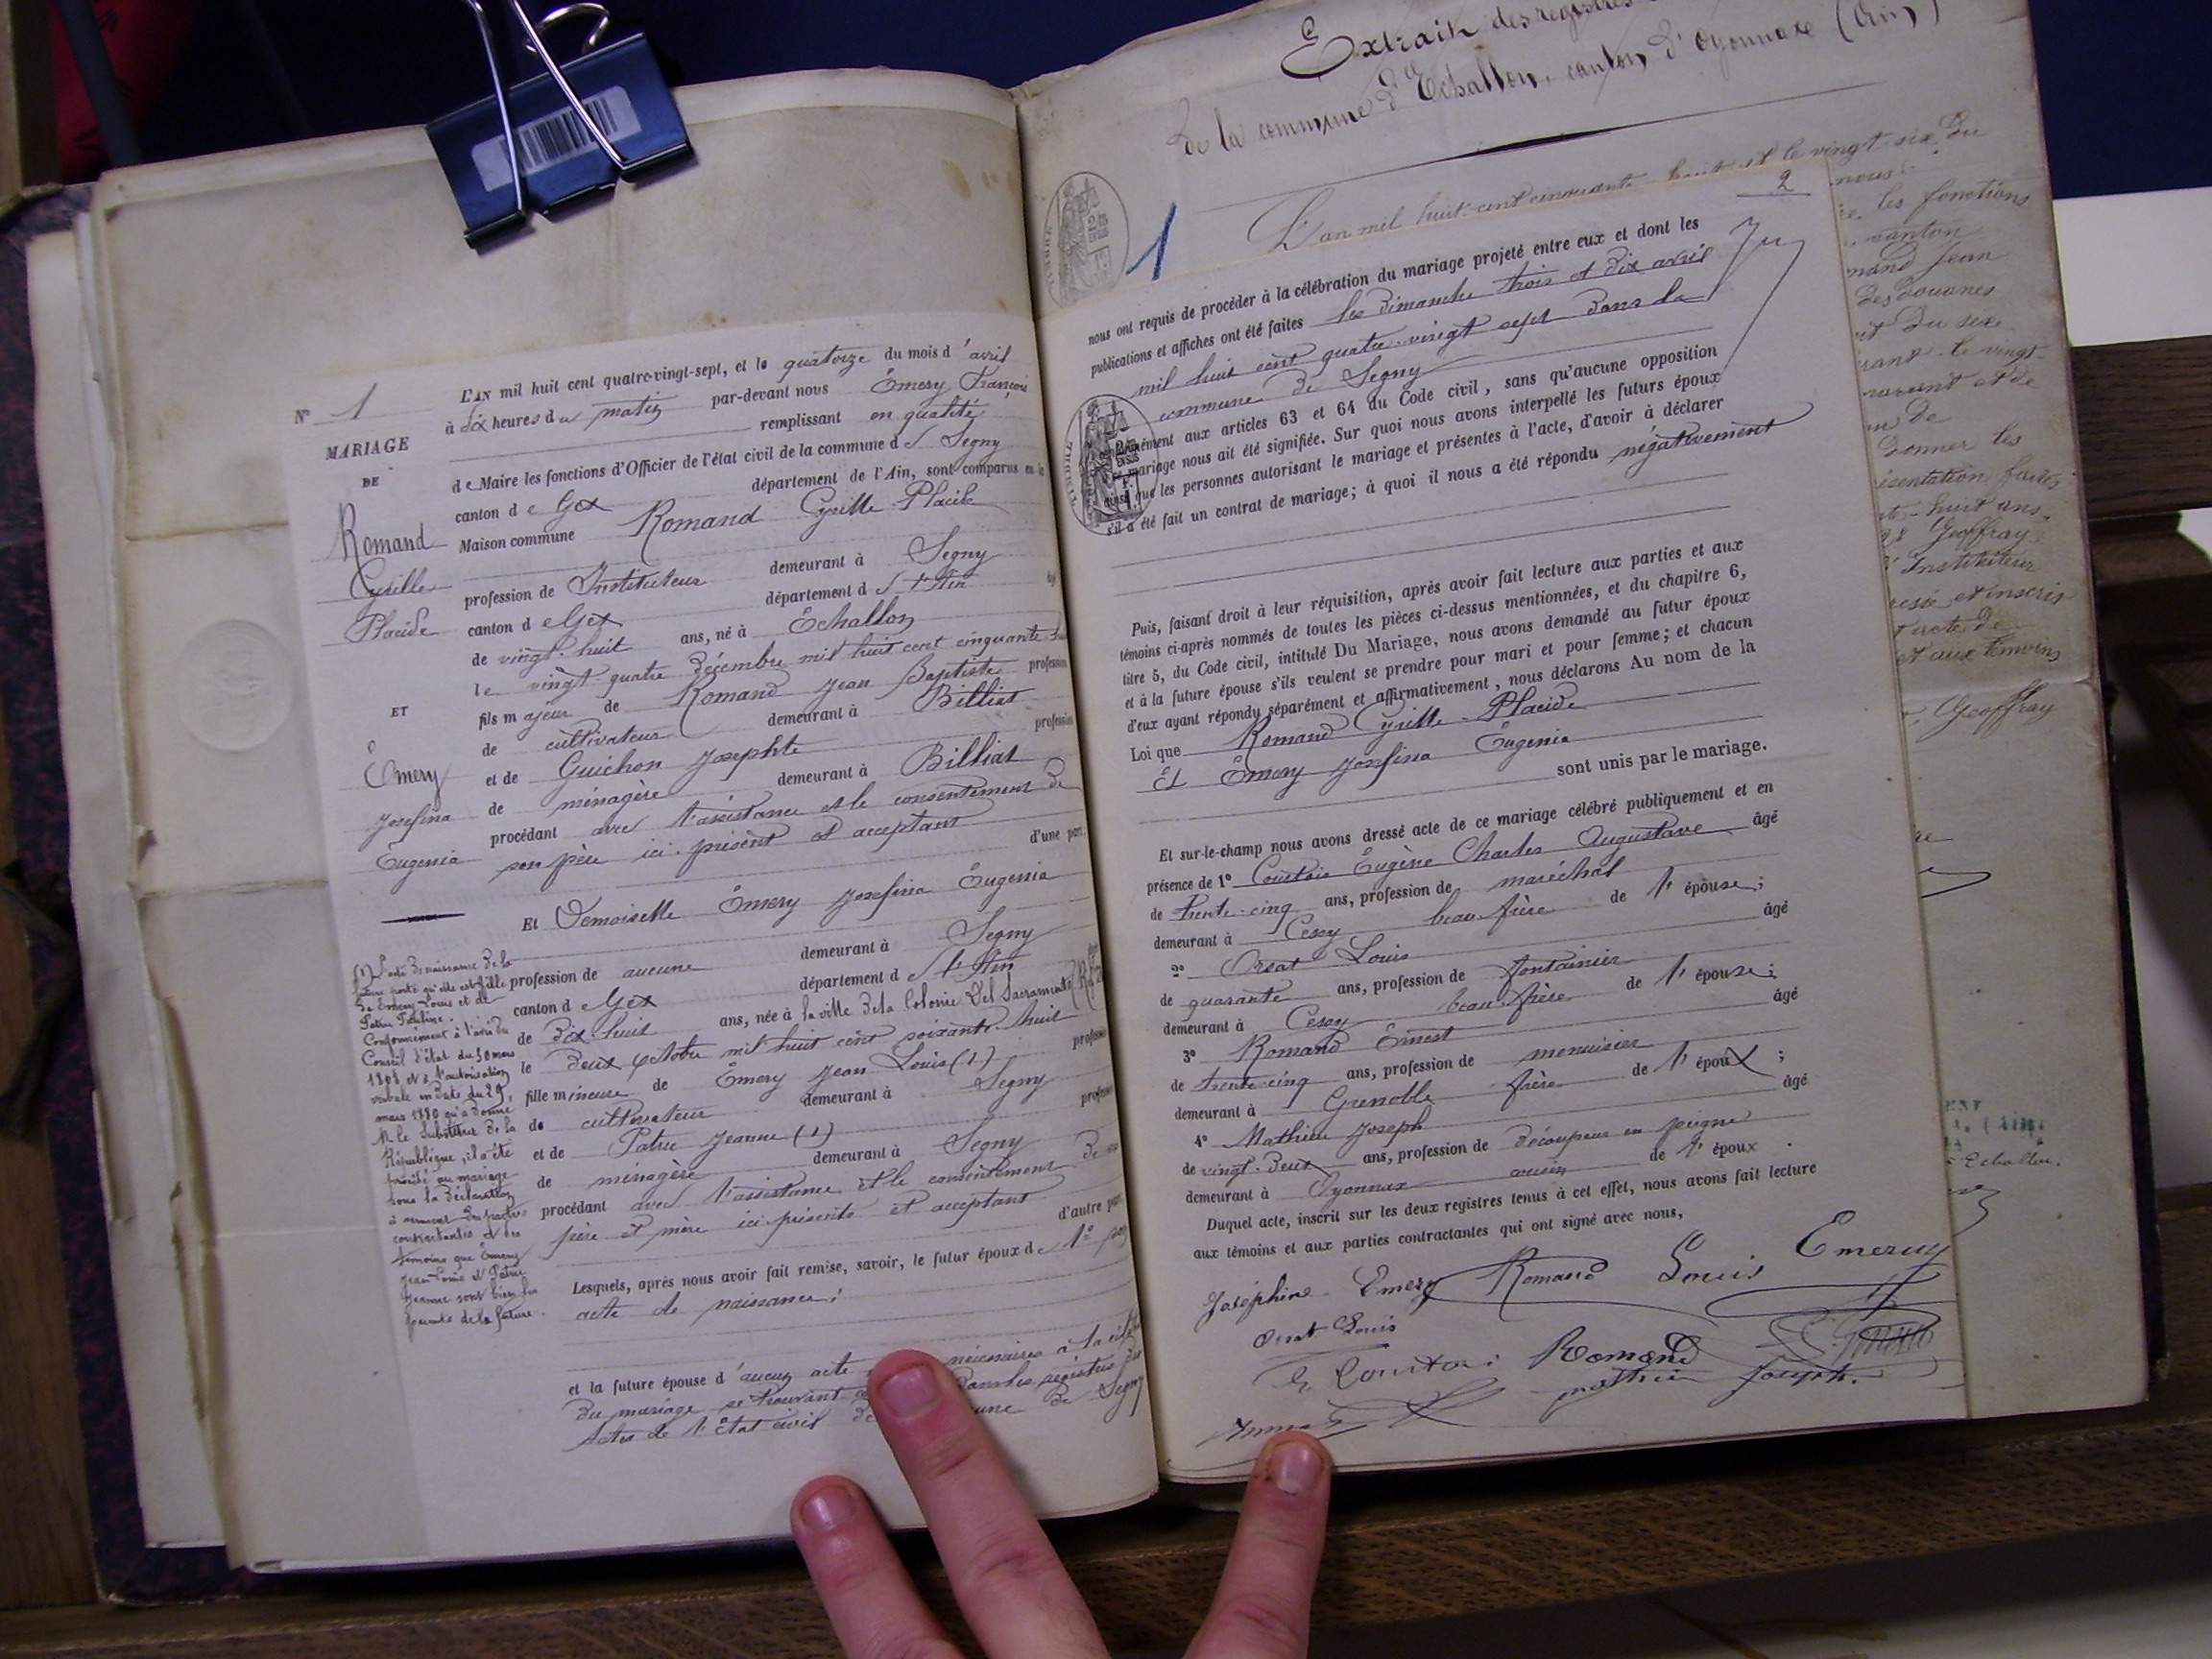 N° 1
MARIAGE
DE
Romand
Cyrille
Placide
ET
Emery
Josefina
Eugenia
L'AN mil huit cent quatre-vingt-sept, et le quatorze du mois d'avril
à dix heures du matin par-devant nous Émery François
remplissant en qualité
de Maire les fonctions d'Officier de l'état civil de la commune d Segny
canton de Gex département de l'Ain, sont comparus en la
Maison commune Romand Cyrille Placide
profession de Instituteur demeurant à Segny
canton de Gex département d l'Ain
de vingt-huit ans, né à Échallon
le vingt-quatre décembre mil huit cent cinquante
fils majeur de Romand Jean Baptiste profession
de cultivateur demeurant à Billiat
et de Guichon Josephte profession
de ménagère demeurant à Billiat
procédant avec l'assistance et le consentement de
son père ici présent et acceptant d'une part,
Et Demoiselle Émery Josefina Eugenia
demeurant à Segny
profession de aucune département d l'Ain
canton de Gex
de dix-huit ans, née à la ville de la Colonie Del Sacramento
le deux octobre mil huit cent soixante-huit
fille mineure de Émery Jean Louis (1) profession
de cultivateur demeurant à Segny
et de Patru Jeanne (1) profession
de ménagère demeurant à Segny
procédant avec l'assistance et le consentement de
père et mère ici présents et acceptant d'autre part
Lesquels, après nous avoir fait remise, savoir, le futur époux de
acte de naissance;
et la future épouse d'aucun acte nécessaires à la
du mariage se trouvant dans les registres
actes de l'État civil une de Segny
(1) L'acte de naissance de la
future porte qu'elle est fille
de Emery Louis et de
Patru Pauline.
Conformément à l'avis du
Conseil d'état du 30 mars
1808 et à l'autorisation
verbale en date du 29
mars 1880 qu'a donné
M. le Substitut de la
République, il a été
procédé au mariage
sous la déclaration
à serment des parties
contractantes et des
témoins que Émery
Jean-Louis et Patru
Jeanne sont bien les
parents de la future.
Extrait des registres
de la commune d'Echallon, canton d'Oyonnax (Ain)
L'an mil huit-cent cinquante-huit et le vingt-six du
1
2
nous ont requis de procéder à la célébration du mariage projeté entre eux et dont les
publications et affiches ont été faites les dimanche trois et dix avril
mil huit cent quatre-vingt sept dans la
commune de Segny
conformément aux articles 63 et 64 du Code civil, sans qu'aucune opposition
mariage nous ait été signifiée. Sur quoi nous avons interpellé les futurs époux
ainsi que les personnes autorisant le mariage et présentes à l'acte, d'avoir à déclarer
s'il a été fait un contrat de mariage; à quoi il nous a été répondu négativement
Puis, faisant droit à leur réquisition, après avoir fait lecture aux parties et aux
témoins ci-après nommés de toutes les pièces ci-dessus mentionnées, et du chapitre 6,
titre 5, du Code civil, intitulé Du Mariage, nous avons demandé au futur époux
et à la future épouse s'ils veulent se prendre pour mari et pour femme; et chacun
d'eux ayant répondu séparément et affirmativement, nous déclarons Au nom de la
Loi que Romand Cyrille Placide
Et Émery Josefina Eugenia
sont unis par le mariage.
Et sur-le-champ nous avons dressé acte de ce mariage célébré publiquement et en
présence de 1° Courtois Eugène Charles Augustave âgé
de trente-cinq ans, profession de maréchal
demeurant à Cessy beau frère de l'épouse;
2° Orsat Louis âgé
de quarante ans, profession de fontainier
demeurant à Cessy beau-frère de l'épouse;
3° Romand Ernest âgé
de trente-cinq ans, profession de menuisier
demeurant à Grenoble frère de l'époux;
4° Mathieu Joseph âgé
de vingt-deux ans, profession de découpeur en peigne
demeurant à Oyonnax cousin de l'époux.
Duquel acte, inscrit sur les deux registres tenus à cet effet, nous avons fait lecture
aux témoins et aux parties contractantes qui ont signé avec nous,
Joséphine Emery Romand Louis Emery
Orsat Louis
E. Courtois Romand
Mathieu Joseph.
nous
les fonctions
canton
Jean
des douanes
du sexe
le vingt-
et de
de
donner les
présentation faite
huit ans,
Geoffray
Instituteur
et inscrit
acte de
et aux témoins
Geoffray
Echallon.